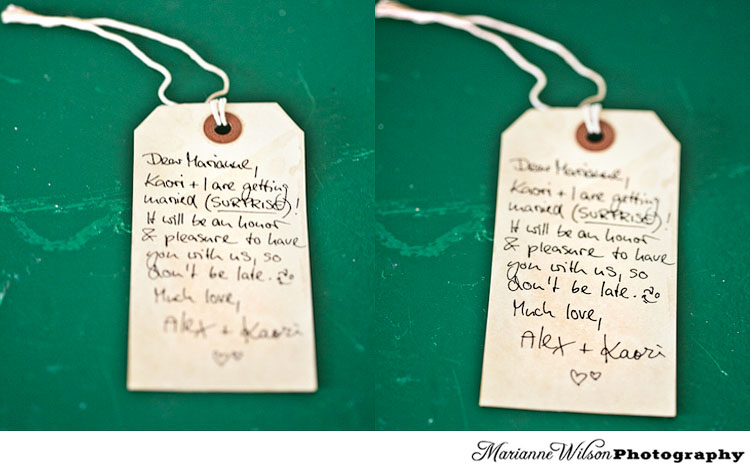 Dear Marianne,
Kaori + I are getting
married (SURPRISE)!
It will be an honor
& pleasure to have
you with us, so
don't be late.
Much love,
Alex + Kaori
Dear Marianne,
Kaori + I are getting
married (SURPRISE)!
It will be an honor
& pleasure to have
you with us, so
don't be late.
Much love,
Alex + Kaori
Marianne Wilson Photography